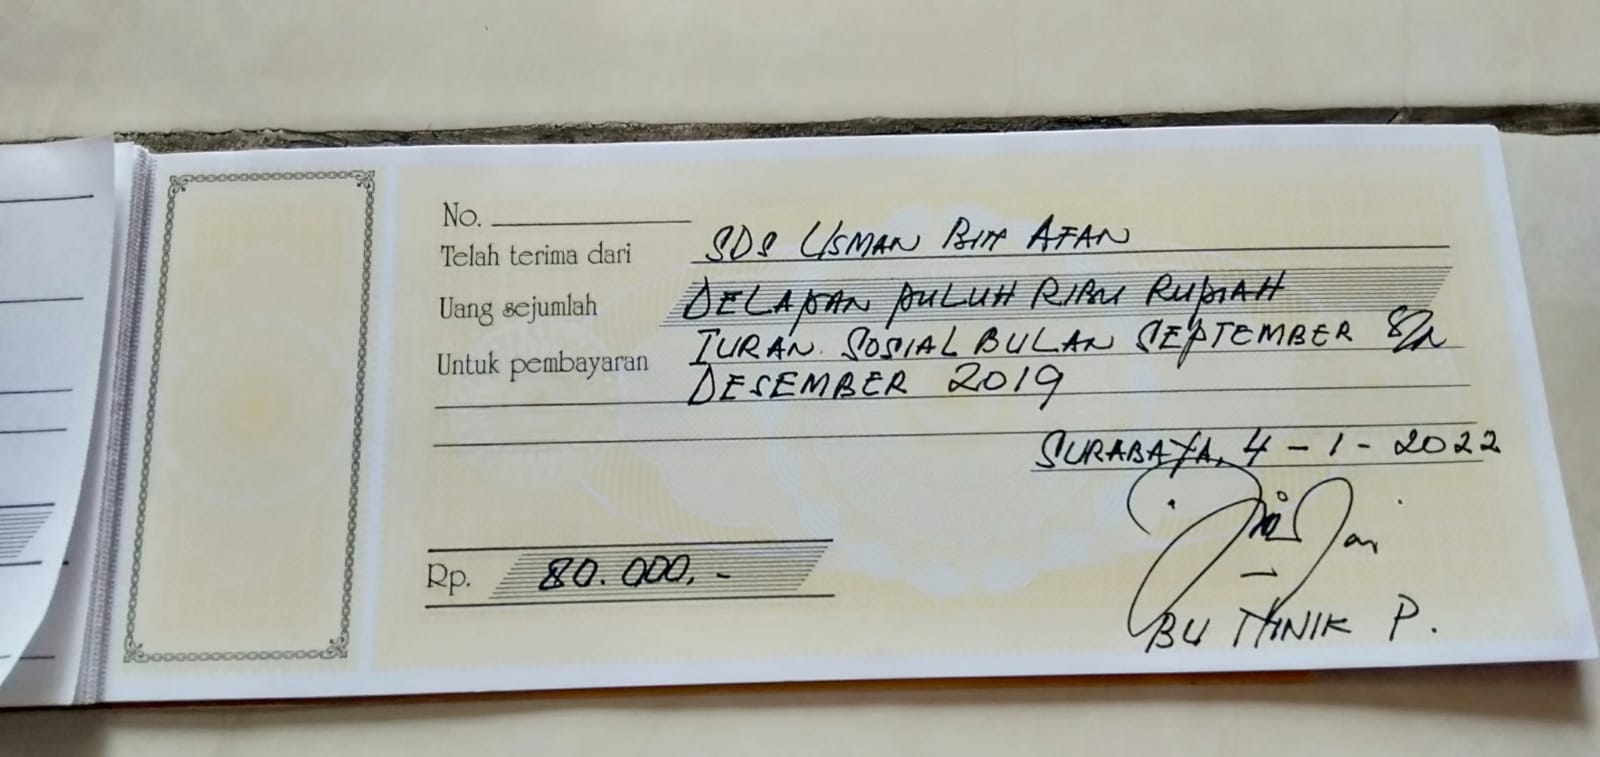 No.
Telah terima dari SDS USMAN BIN AFAN
Uang sejumlah DELAPAN PULUH RIBU RUPIAH
Untuk pembayaran IURAN SOSIAL BULAN SEPTEMBER S/D
DESEMBER 2019
SURABAYA, 4-1-2022
Rp. 80.000,-
BU P.